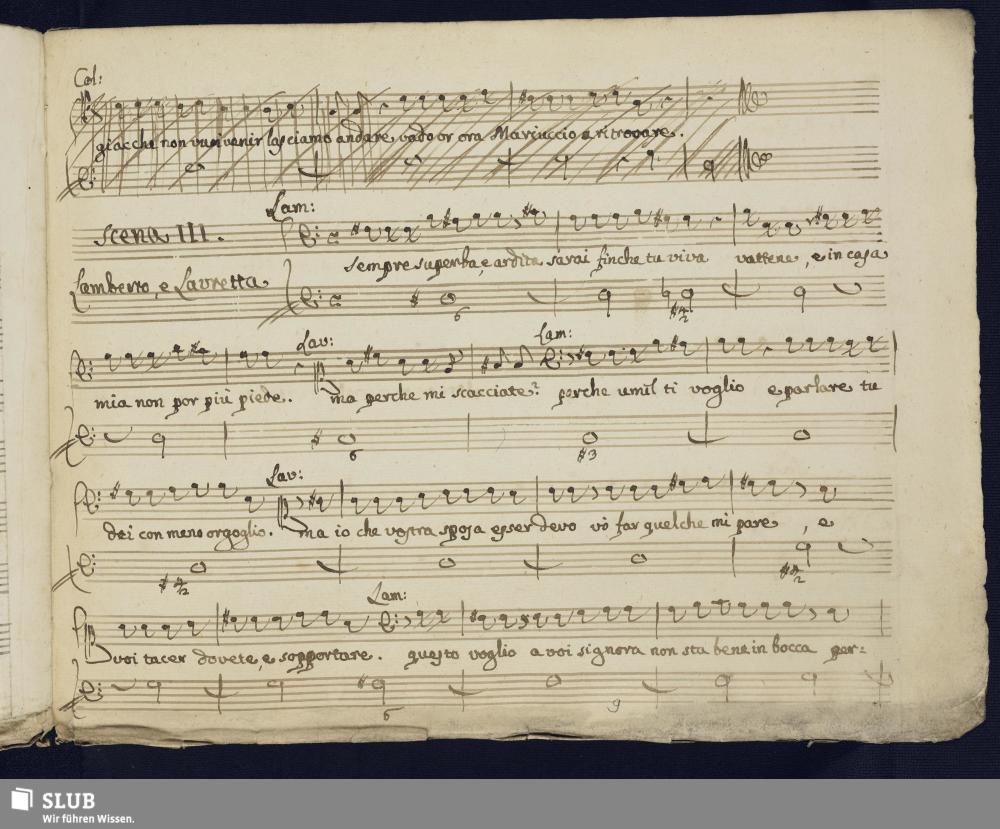 Col:
giacche non vuoi venir lasciamo andare, vado or ora Mariuccio a ritrovare.
Lam:
Scena III.
sempre superba, e ardita sarai finche tu viva vattene, e in casa
Lamberto, e Lauretta
6
#4/2
Lau: Lam:
mia non por più piede. ma perche mi scacciate? perche umil ti voglio e parlare tu
6 #3
Lau:
dei con meno orgoglio. ma io che vostra sposa esser devo vò far quelche mi pare, e
#4/2 #4/2
Lam:
voi tacer dovete, e sopportare. questo voglio a voi signora non sta bene in bocca per:
6 9
SLUB
Wir führen Wissen.